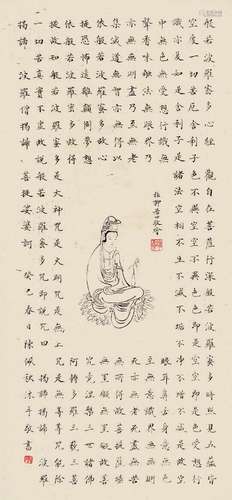 般若波羅蜜多心經 觀自在菩薩行深般若波羅蜜多時照見五蘊皆
空度一切苦厄舍利子色不異空空不異色色即是空空即是色受想行
識亦復如是舍利子是諸法空相不生不滅不垢不淨不增不減是故空
中無色無受想行識無眼耳鼻舌身意無色
聲香味觸法無眼界乃至無意識界無無明
亦無無明盡乃至無老死亦無老死盡無苦
集滅道無智亦無得以無所得故菩提薩
埵依般若波羅蜜多故心無罣礙無罣礙故無有
恐怖遠離顛倒夢想究竟涅槃三世諸佛
依般若波羅蜜多故得阿耨多羅三藐三菩
提故知般若波羅蜜多是大神咒是大明咒是無上咒是無等等咒能除
一切苦真實不虛故說般若波羅蜜多咒即說咒曰 揭諦揭諦 波羅
揭諦 波羅僧揭諦 菩提娑婆訶 癸巳春日陳佩秋沐手敬書